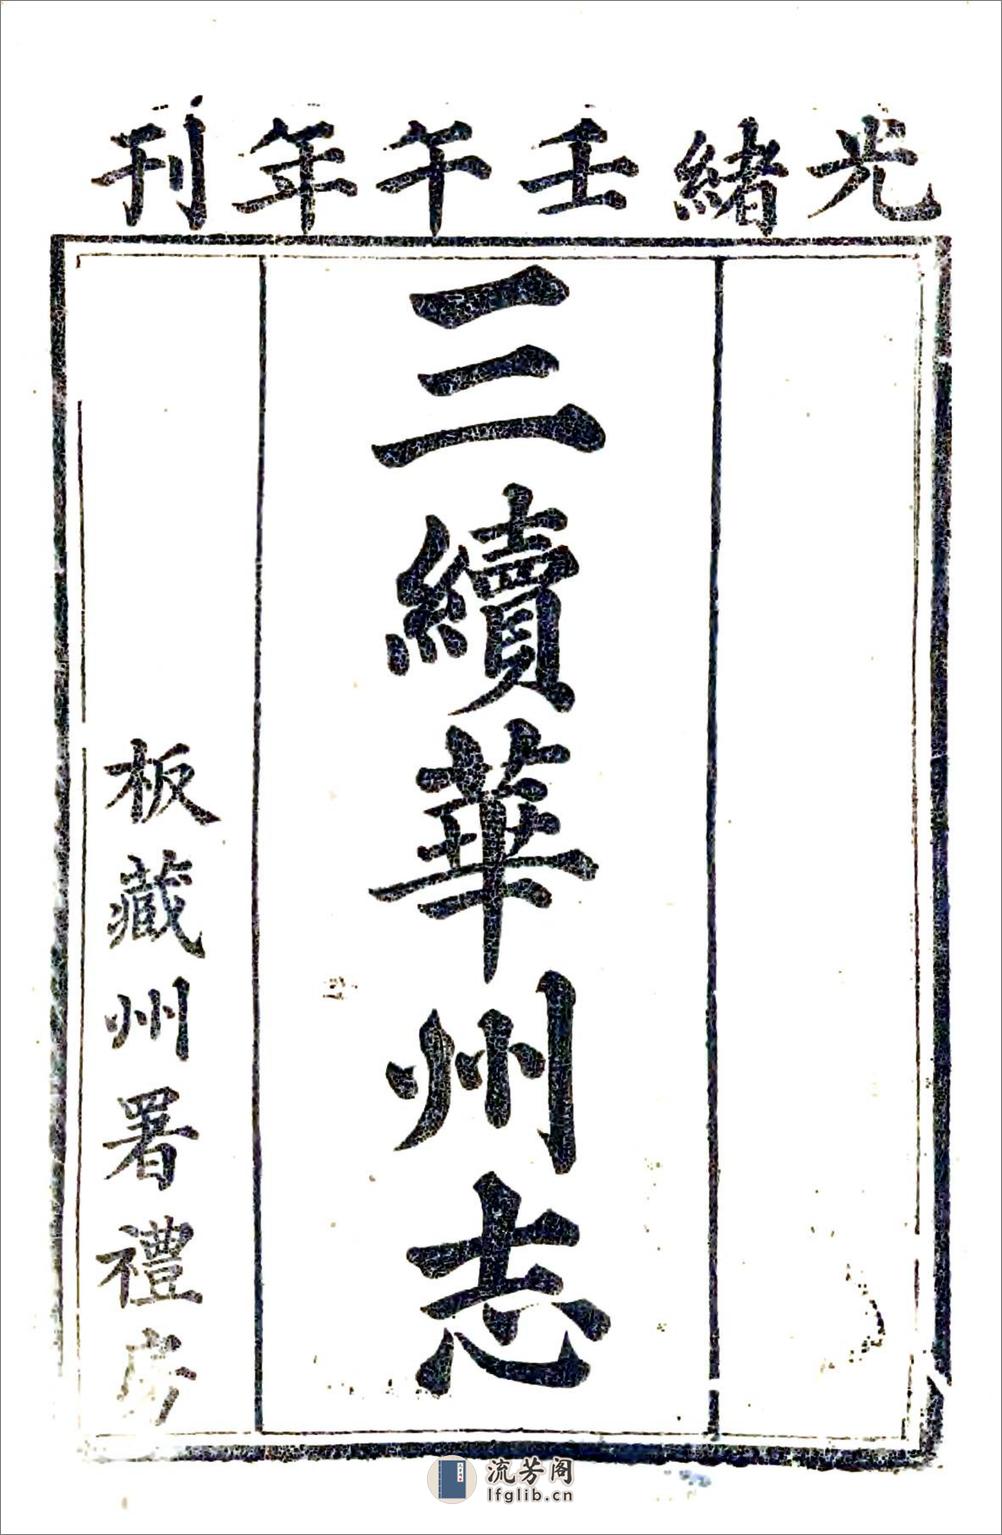 光緒壬午年刊
三續華州志
板藏州署禮房
流芳阁
lfglib.cn